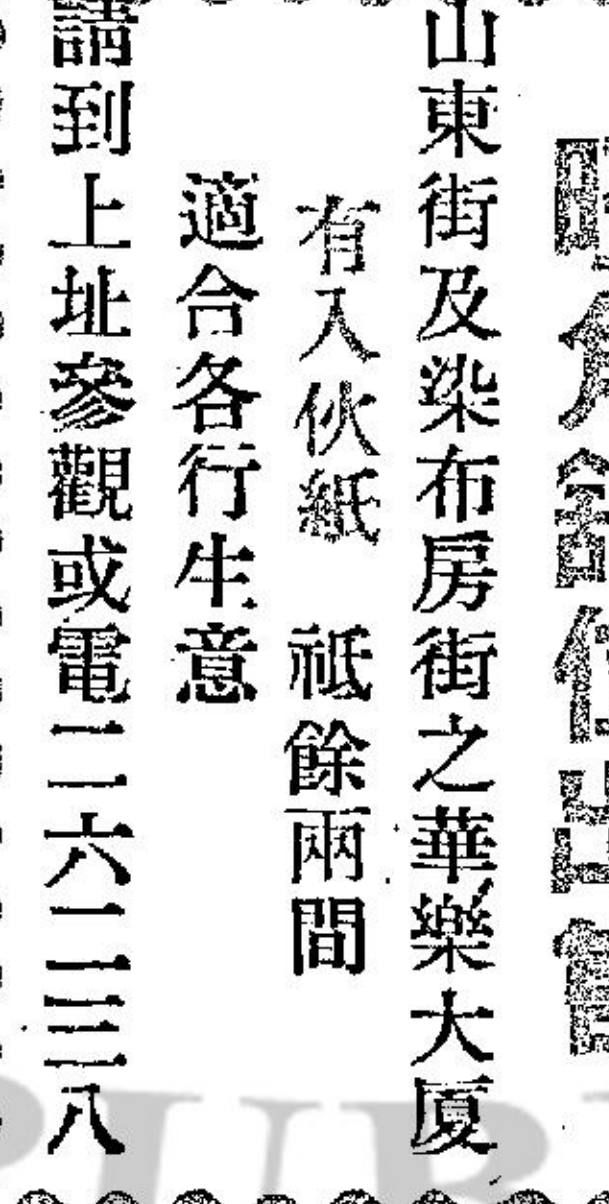 角舖位出售
山東街及染布房街之華樂大厦
有入伙紙 祗餘兩間
適合各行生意
請到上址參觀或電二六二三八